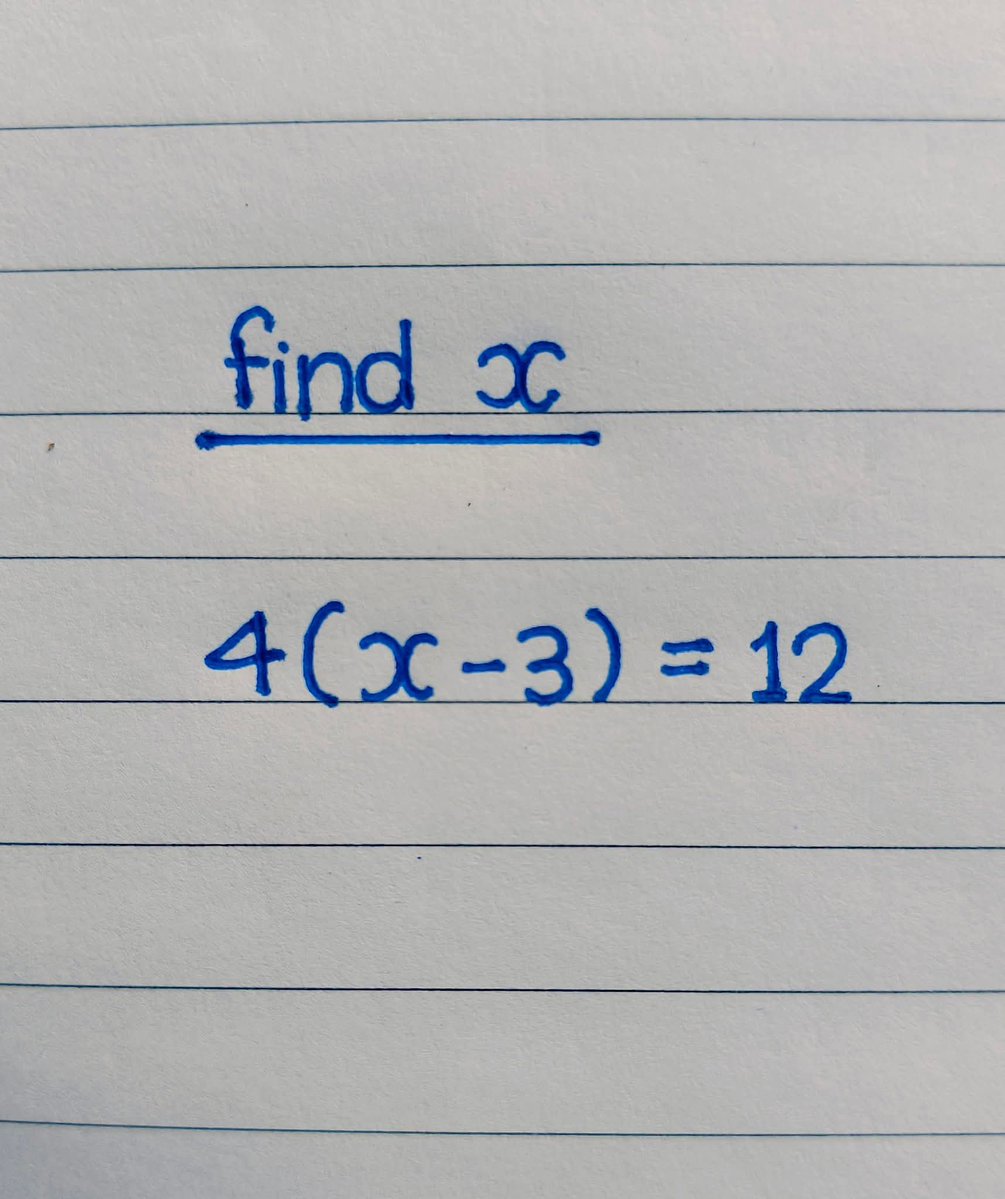 find x
4(x-3) = 12